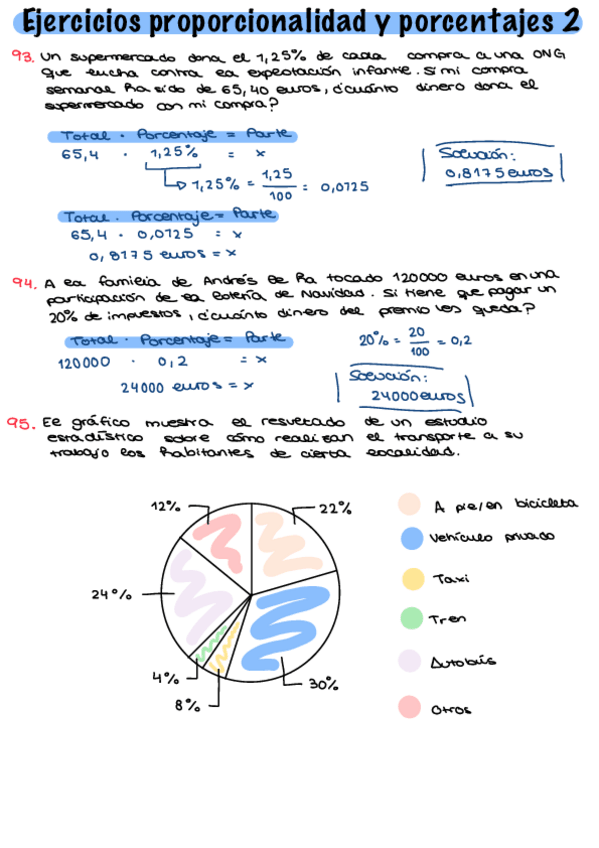 Ejercicios proporcionalidad y porcentajes 2
93. Un supermercado dona el 1,25% de cada compra a una ONG
que lucha contra la explotación infantil. Si mi compra
semanal ha sido de 65,40 euros, ¿cuánto dinero dona el
supermercado con mi compra?
Total · Porcentaje = Parte
65,4 · 1,25% = x
1,25% = 1,25/100 = 0,0125
Solución:
0,8175 euros
Total · Porcentaje = Parte
65,4 · 0,0125 = x
0,8175 euros = x
94. A la familia de Andrés le ha tocado 120000 euros en una
participación de la lotería de Navidad. Si tiene que pagar un
20% de impuestos, ¿cuánto dinero del premio les queda?
Total · Porcentaje = Parte
120000 · 0,2 = x
24000 euros = x
20% = 20/100 = 0,2
Solución:
24000 euros
95. El gráfico muestra el resultado de un estudio
estadístico sobre cómo realizan el transporte a su
trabajo los habitantes de cierta localidad.
12%
22%
24%
4%
8%
30%
A pie/en bicicleta
Vehículo privado
Taxi
Tren
Autobús
Otros